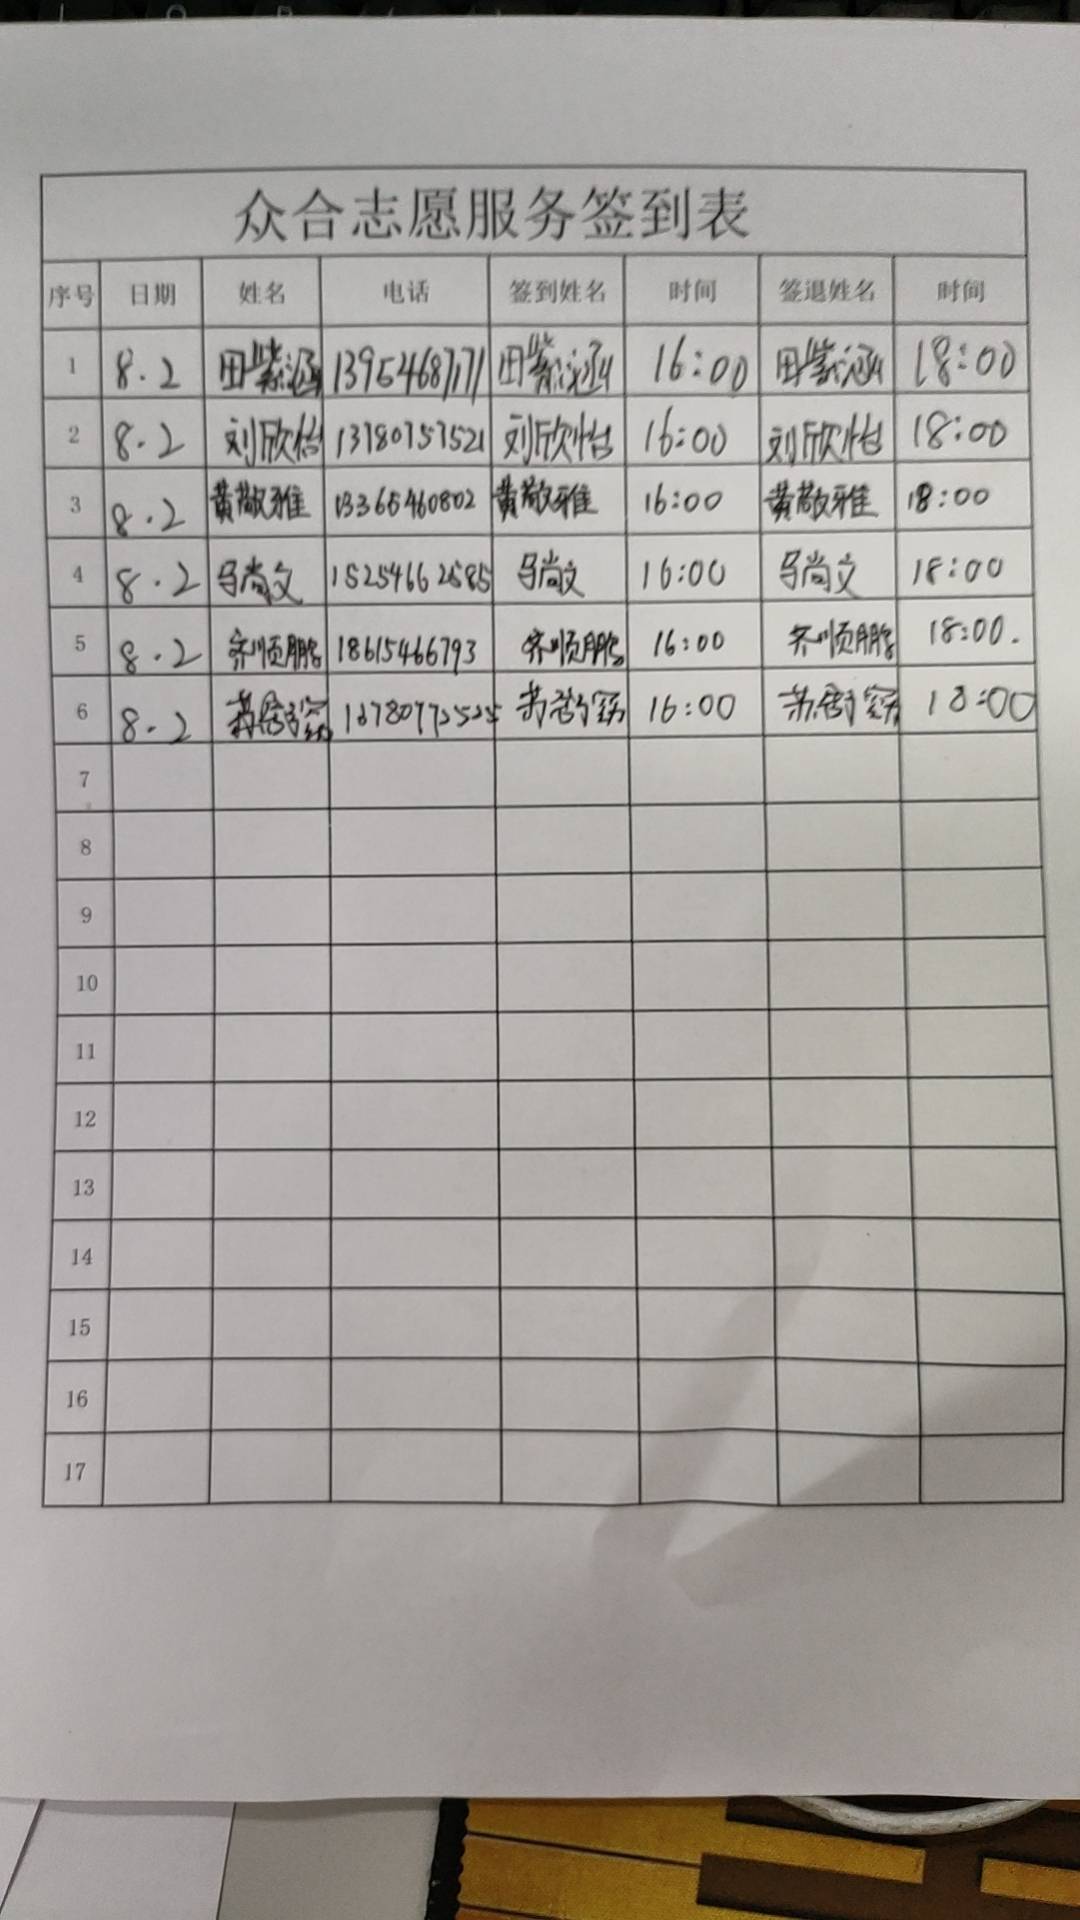 众合志愿服务签到表
序号 日期 姓名 电话 签到姓名 时间 签退姓名 时间
1 8.2 田紫涵 田紫涵 16:00 田紫涵 18:00
2 8.2 刘欣怡 13780757521 刘欣怡 16:00 刘欣怡 18:00
3 8.2 黄敬雅 13365460802 黄敬雅 16:00 黄敬雅 18:00
4 8.2 马尚文 15254662585 马尚文 16:00 马尚文 18:00
5 8.2 齐顺鹏 18615466793 齐顺鹏 16:00 齐顺鹏 18:00.
6 8.2 16:00 18:00
7
8
9
10
11
12
13
14
15
16
17